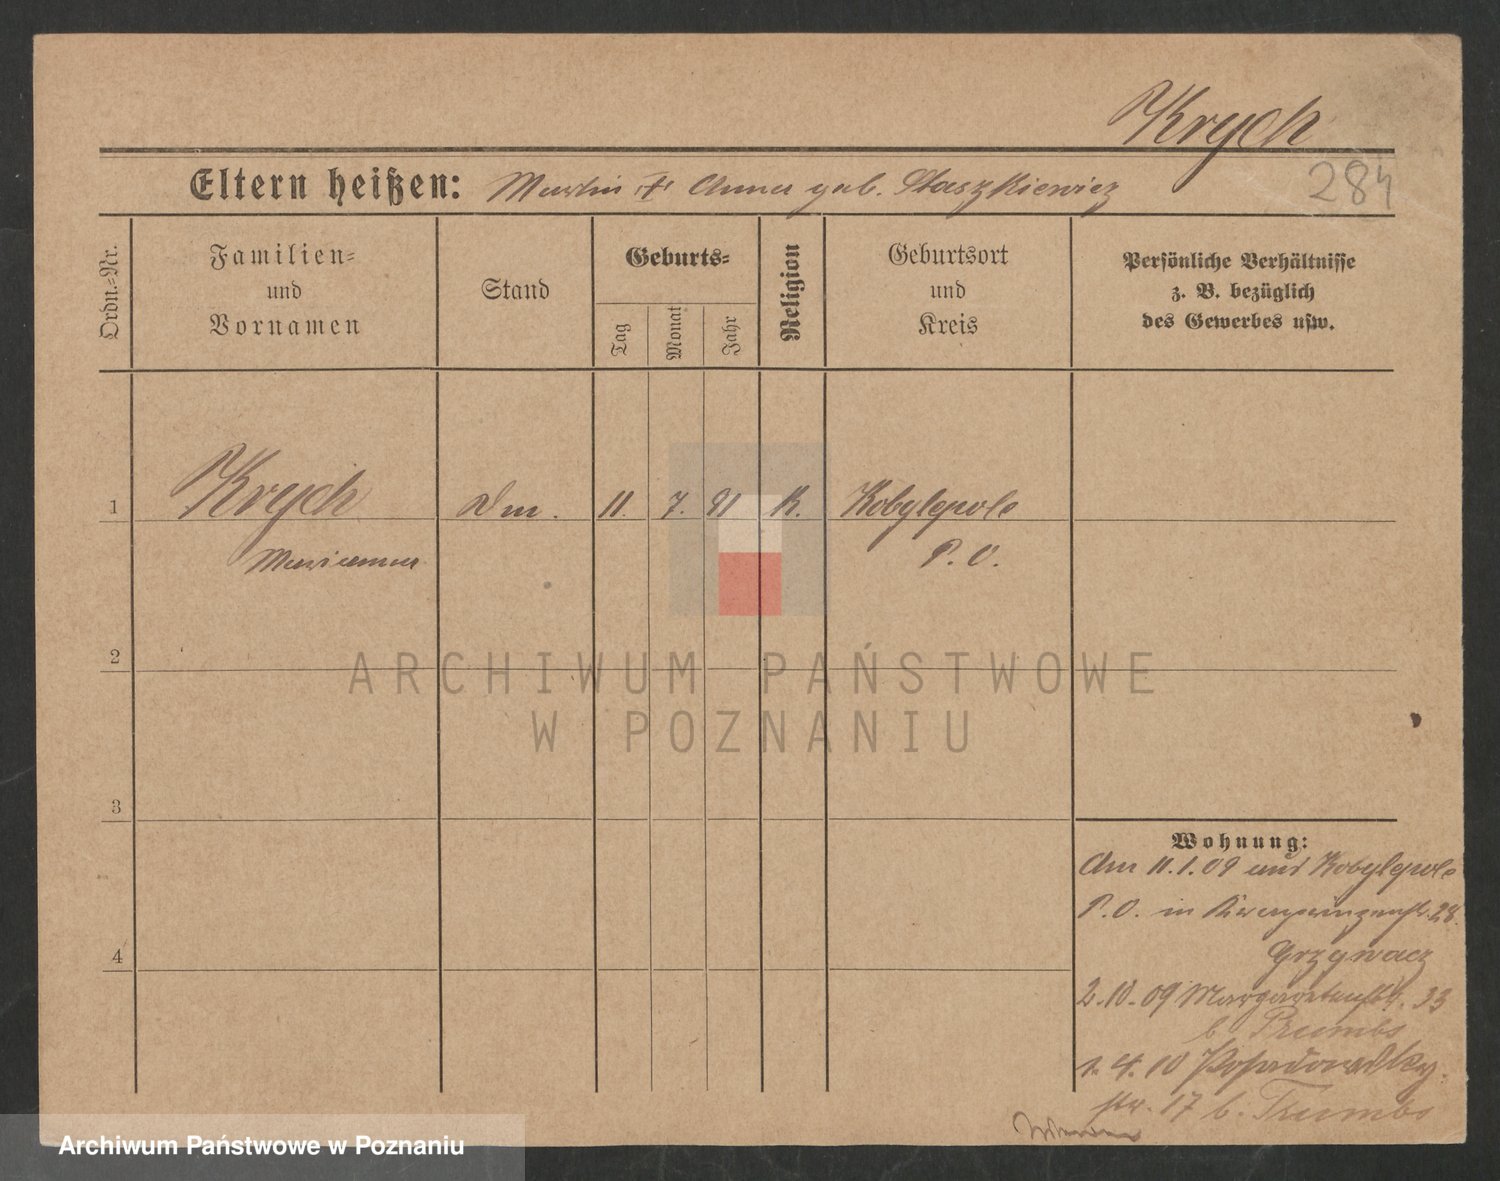 Krych
284
Eltern heißen: Martin + Anna geb. Staszkiewicz
Ordn.-Nr.
Familien-
und
Vornamen
Stand
Geburts-
Tag
Monat
Jahr
Religion
Geburtsort
und
Kreis
Persönliche Verhältnisse
z. B. bezüglich
des Gewerbes usw.
1 Krych Dm. 11. 7. 91 K. Kobylepole
Marianna P. O.
2
3
4
Wohnung:
Am 11.1.09 aus Kobylepole
P.O. in Kronprinzenstr. 28.
Grzywacz
2.10.09 Margaretenstr. 33
b.
1.4.10
str. 17 b.
ARCHIWUM PAŃSTWOWE
W POZNANIU
Archiwum Państwowe w Poznaniu